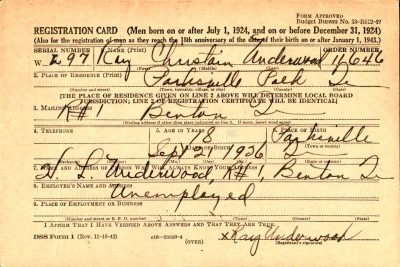 FORM APPROVED
Budget Bureau No. 33-R122-42
REGISTRATION CARD (Men born on or after July 1, 1924, and on or before December 31, 1924)
(Also for the registration of men as they reach the 18th anniversary of the date of their birth on or after January 1, 1943.)
SERIAL NUMBER 1. NAME (Print) ORDER NUMBER
W 297 Ray Christain Underwood 11646
2. PLACE OF RESIDENCE (Print)
Parksville Polk
(Town, township, village, or city) (County) (State)
[THE PLACE OF RESIDENCE GIVEN ON LINE 2 ABOVE WILL DETERMINE LOCAL BOARD
JURISDICTION; LINE 2 OF REGISTRATION CERTIFICATE WILL BE IDENTICAL]
3. MAILING ADDRESS
R#1 Benton
[Mailing address if other than place indicated on line 2. If same, insert word same]
4. TELEPHONE 5. AGE IN YEARS 6. PLACE OF BIRTH
18 Parksville
DATE OF BIRTH
Sept
7. NAME AND ADDRESS OF PERSON WHO WILL ALWAYS KNOW YOUR ADDRESS
L. Underwood, R#1, Benton
8. EMPLOYER'S NAME AND ADDRESS
Unemployed
9. PLACE OF EMPLOYMENT OR BUSINESS
(Number and street or R. F. D. number) (Town) (County) (State)
I AFFIRM THAT I HAVE VERIFIED ABOVE ANSWERS AND THAT THEY ARE TRUE.
DSS Form 1 (Rev. 11-16-42) (OVER) x Ray Underwood
(Registrant's signature)